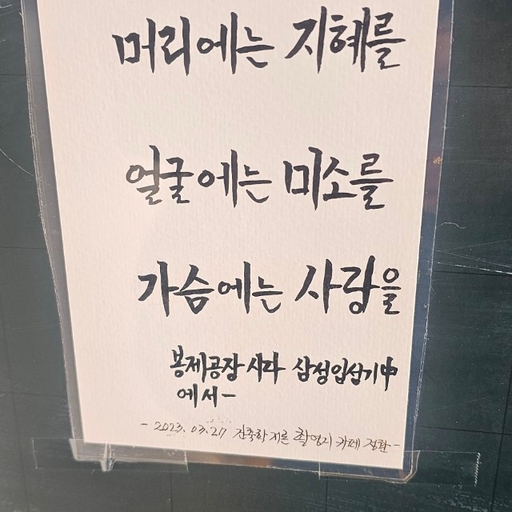 머리에는 지혜를
얼굴에는 미소를
가슴에는 사랑을
봉제공장 시다 삼성입성기中
에서-
- 2023. 03. 27 건축학 촬영지 카페 -